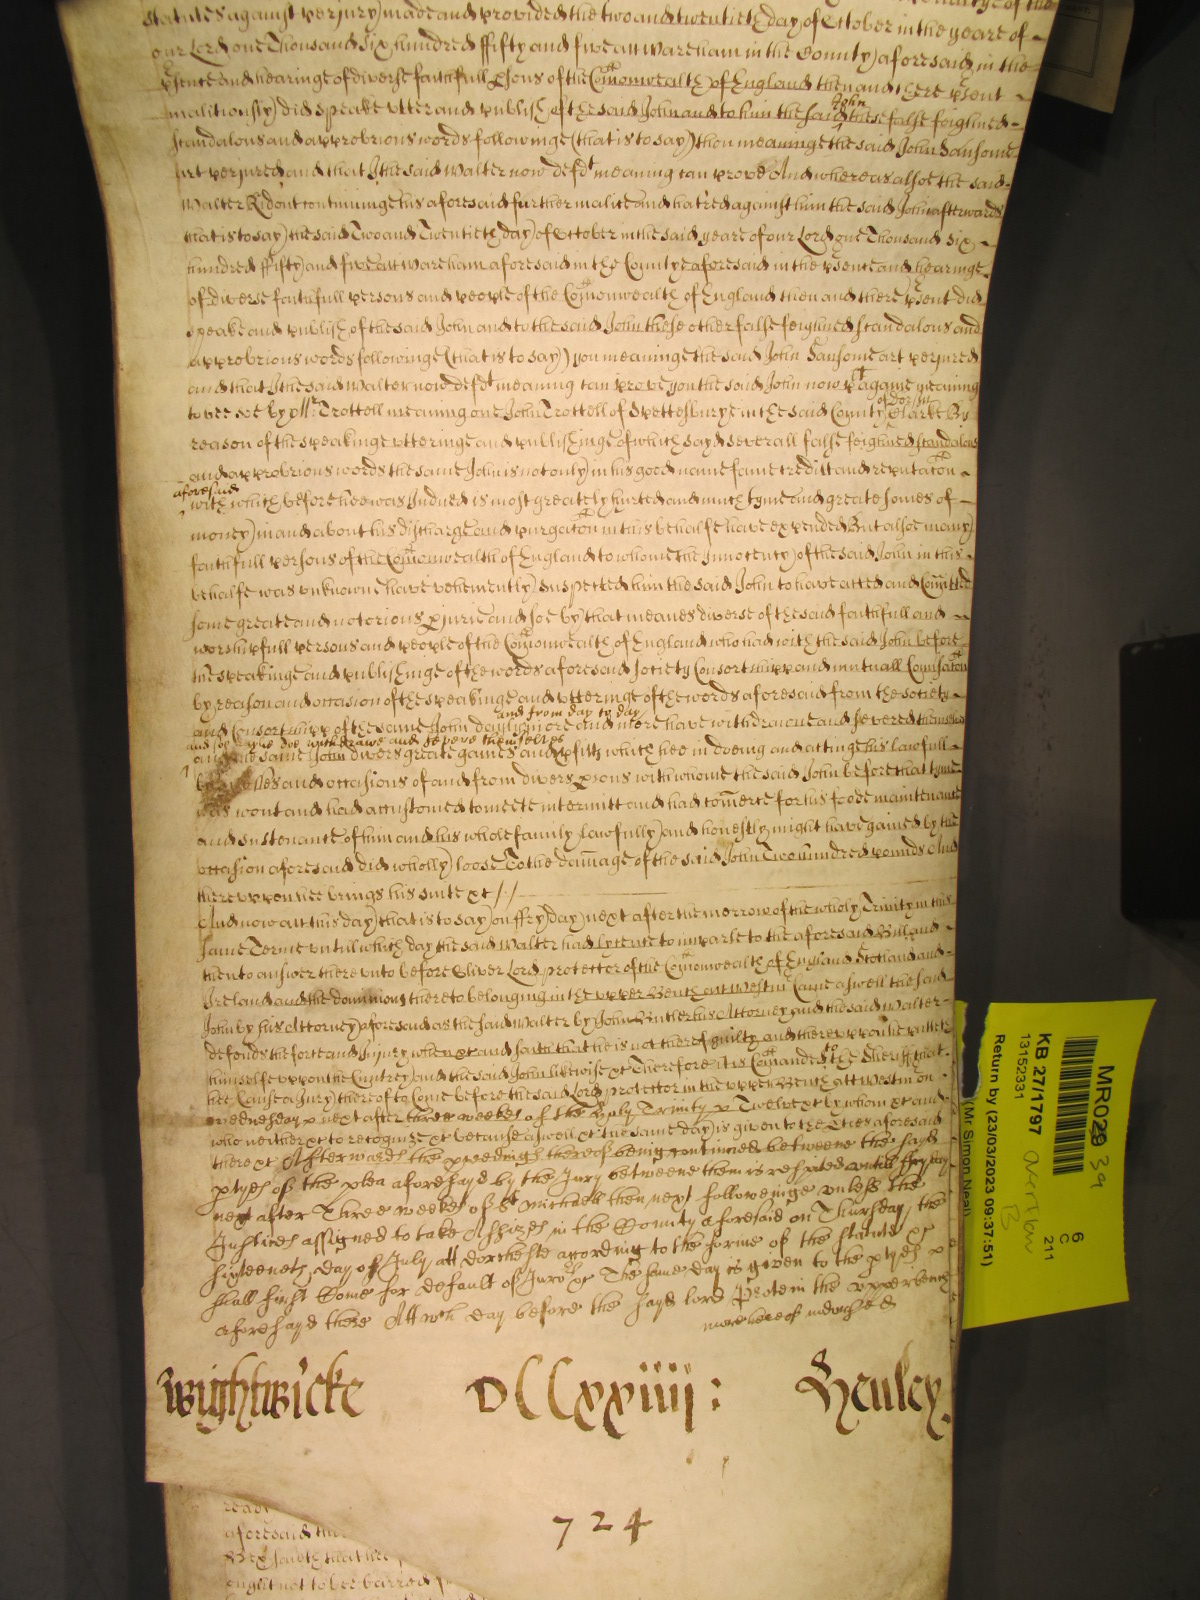 statutes against perjury made and provided the two and twentieth day of October in the yeare of
our Lord one Thousand six hundred ffifty and five att Wareham in the County aforesaid in the
psence and hearinge of diverse faithfull psons of the Comonwealth of England then and there psent
malitiously did speake utter and publish of the said John and to him the said John these false feighned
scandalous and approbrious words followinge (that is to say) thou meaninge the said John Sansome
art perjured and that I the said Walter now defdt meaning can prove And whereas alsoe the said
Walter Ridout continuinge his aforesaid further malice and hatred against him the said John afterwards
that is to say the said Two and Twentieth day of October in the said yeare of our Lord one Thousand six
hundred ffifty and five att Wareham aforesaid in the County aforesaid in the psence and hearinge
of diverse faithfull persons and people of the Comonwealth of England then and there psent did
speake and publish of the said John and to the said John these other false feighned scandalous and
approbrious words followinge (that is to say) you meaninge the said John Sansome art perjured
and that I the said Walter now defdt meaning can prove you the said John now plt againe meaning
to bee soe by Mr Trottell meaning one John Trottell of Spettesburye in the said County of Dorst Clarke By
reason of the speakinge utteringe and publishinge of which sayd severall false feighned scandalous
and approbrious words the same John is not only in his good name fame creditt and reputacon
aforesaid
with which before hee was Indued is most greately hurted and much tyme and greate somes of
money in and about his discharge and purgacon in this behalfe have expended But alsoe many
faithfull persons of the Comonwealth of England to whome the Innocency of the said John in this
behalfe was unknowne have vehemently suspected him the said John to have acted and Comitted
some great and notorious pjurie and soe by that meanes diverse of the said faithfull and
worshipfull persons and people of the Comonwealth of England who had with the said John before
the speakinge and publishinge of the words aforesaid society Consortshipp and mutuall
by reason and occasion of the speakinge and utteringe of the words aforesaid from the society
and from day to day
and Consortshipp of the same John dayly more and more have withdrawne and severed themselves
and soe dayly doe withdrawe and severe themselves
and the same John divers greate gaines and pfitts which hee in doeing and actinge his lawfull
and occasions of and from divers psons with whome the said John before that tyme
was wont and had accustomed to meete intermitt and had comerce for his foode maintenance
and sustenance of him and his whole family lawfully and honestly might have gained by the
occasion aforesaid did wholly loose To the damage of the said John Two hundred pounds And
thereuppon hee brings his suite &c //
And now att this day that is to say on ffryday next after the morrow of the wholy Trinity in this
same Terme untill which day the said Walter had lycence to imparle to the aforesaid Bill and
then to answer thereunto before Oliver Lord protector of the Comonwealth of England Scotland and
Ireland and the dominions thereto belonging in the upper Bench att Westm Came aswell the said
John by his Attorney aforesaid as the said Walter by John Butler his Attorney and the said Walter
defends the force and Injury when &c and saith that he is not thereof guilty and thereuppon he putteth
himselfe uppon the Cuntrey and the said John likewise &c Therefore it is Comanded to the Sheriff that
hee Cause a Jury thereof to Come before the said Lord protector in the upper Bench att Westm on
Wednesday next after three weekes of the Holy Trinity Twelve &c by whom &c and
who neither &c to recognize &c because aswell &c the same day is given to the pties aforesaid
there &c Afterwards the pceedings thereof being continued betweene the sayd
ptyes of the plea aforesayd by the Jury betweene them is respited untill ffryday
next after Three weekes of St Michaell then next followeinge unless the
Justices assigned to take Assizes in the County aforesaid on Thursday the
sixteenth day of July att dorchester according to the forme of the statute &c
shall first Come for default of Juro &c The same day is given to the ptyes
aforesayd there Att wch day before the sayd lord Protein the upper bench
more hereof
Wightwicke DCCxxiiij : Henley
724
ready
aforesaid
saith that hee
ought not to be barred
MR029
KB 27/1797
13152331
Return by (23/03/2023 09:37:51)
(Mr Simon Neal)
6
C
211
overflow
B